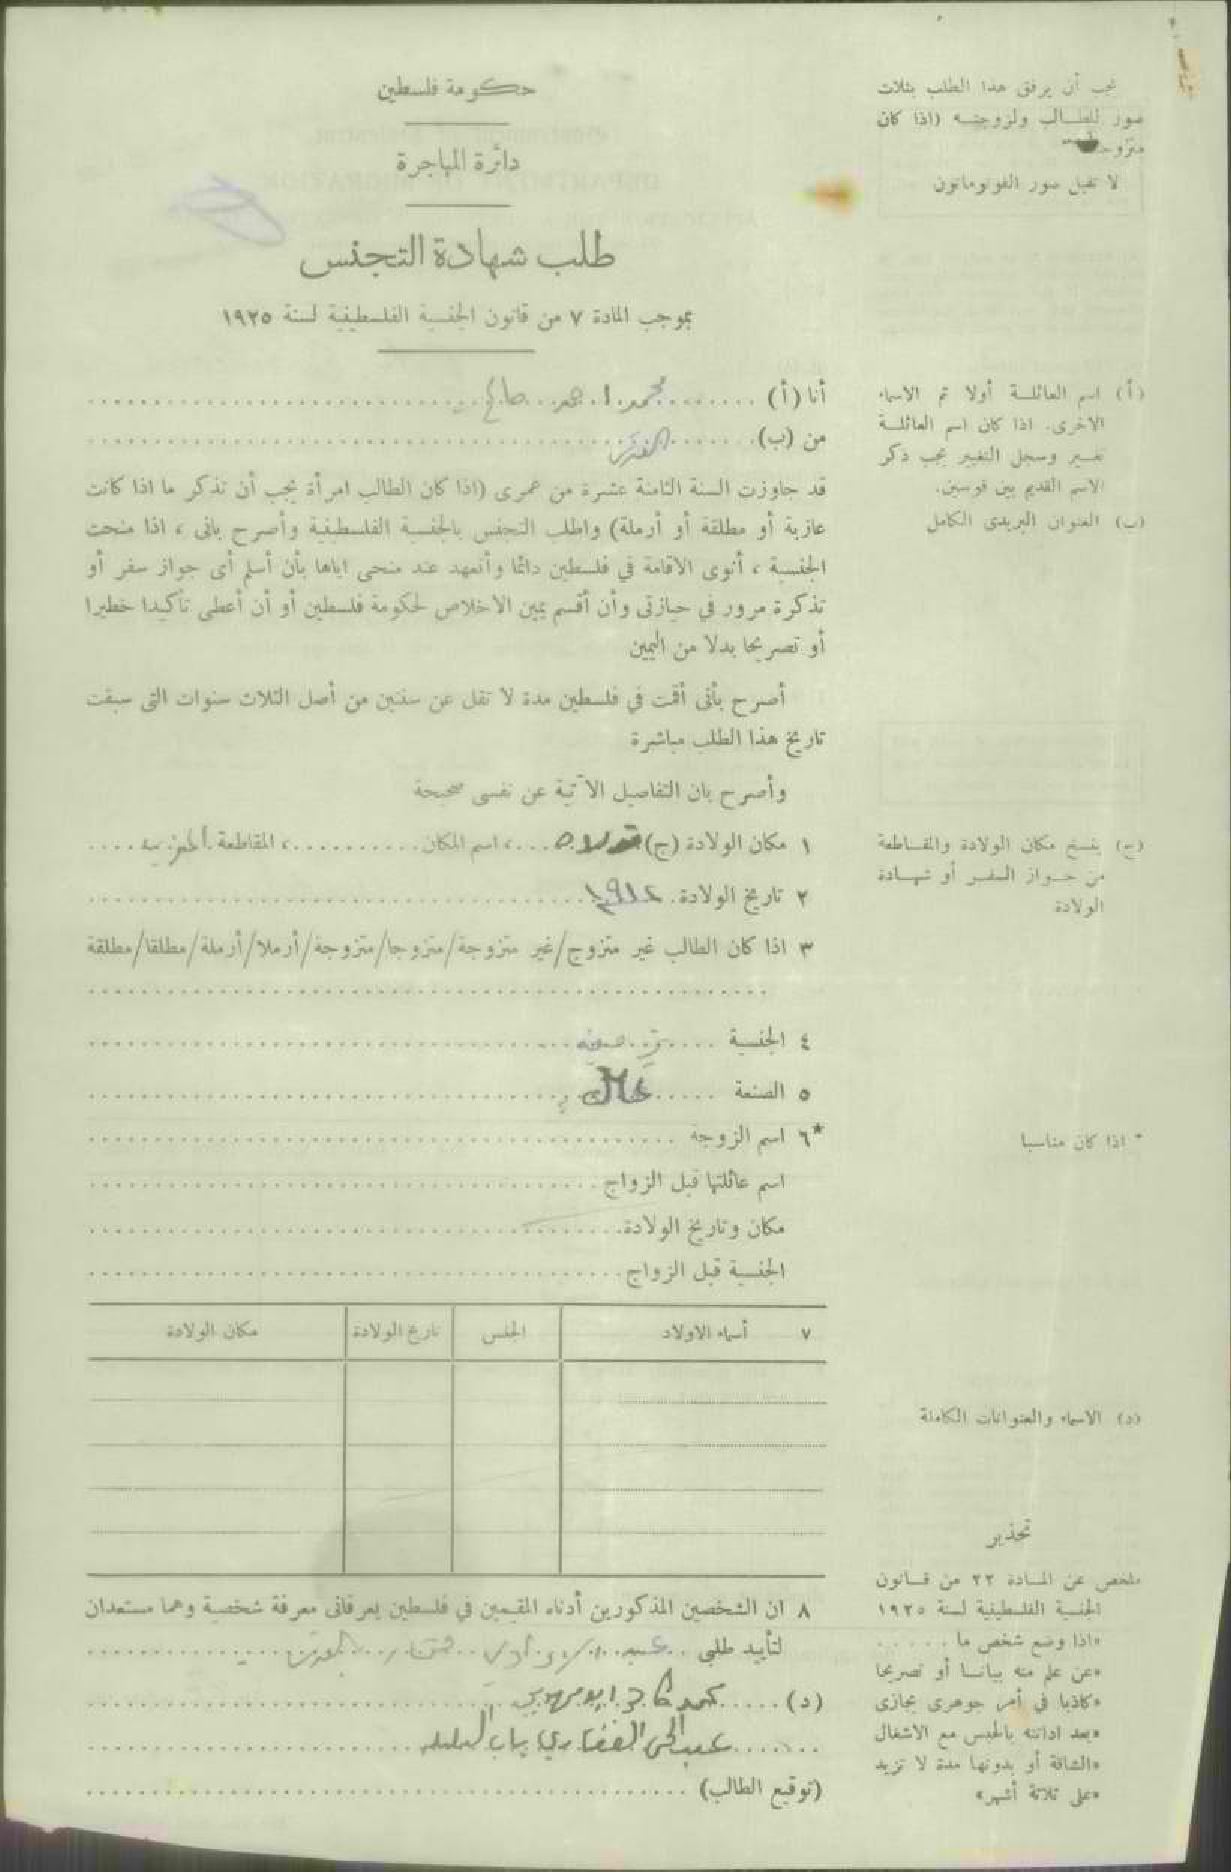 حكومة فلسطين
دائرة المهاجرة
طلب شهادة التجنس
بموجب المادة ٧ من قانون الجنسية الفلسطينية لسنة ١٩٢٥
يجب أن يرفق هذا الطلب بثلاث
صور للطالب ولزوجته (اذا كان
لا تقبل صور الفوتوماتون
أنا (أ) محمد احمد صالح
من (ب)
(أ) اسم العائلة أولا ثم الاسماء
الاخرى. اذا كان اسم العائلة
تغير وسجل التغيير يجب ذكر
الاسم القديم بين قوسين.
(ب) العنوان البريدى الكامل
قد جاوزت السنة الثامنة عشرة من عمرى (اذا كان الطالب امرأة يجب أن تذكر ما اذا كانت
عازبة أو مطلقة أو أرملة) واطلب التجنس بالجنسية الفلسطينية وأصرح بانى ، اذا منحت
الجنسية ، أنوى الاقامة في فلسطين دائما وأتعهد عند منحى اياها بأن أسلم أى جواز سفر أو
تذكرة مرور في حيازتى وأن أقسم يمين الاخلاص لحكومة فلسطين أو أن أعطى تأكيدا خطيرا
أو تصريحا بدلا من اليمين
أصرح بأنى أقمت في فلسطين مدة لا تقل عن سنتين من أصل الثلاث سنوات التى سبقت
تاريخ هذا الطلب مباشرة
وأصرح بان التفاصيل الآتية عن نفسى صحيحة
١ مكان الولادة (ج) ، اسم المكان ، المقاطعة
(ج) ينسخ مكان الولادة والمقاطعة
من جواز السفر أو شهادة
الولادة
٢ تاريخ الولادة
٣ اذا كان الطالب غير متزوج/غير متزوجة/متزوجا/متزوجة/أرملا/أرملة/مطلقا/مطلقة
٤ الجنسية
٥ الصنعة
*٦ اسم الزوجة
* اذا كان مناسبا
اسم عائلتها قبل الزواج
مكان وتاريخ الولادة
الجنسية قبل الزواج
٧ أسماء الاولاد الجنس تاريخ الولادة مكان الولادة
(د) الاسماء والعنوانات الكاملة
٨ ان الشخصين المذكورين أدناه المقيمين في فلسطين يعرفانى معرفة شخصية وهما مستعدان
لتأييد طلبى
(د)
عبد الحي
(توقيع الطالب)
تحذير
ملخص عن المادة ٢٢ من قانون
الجنسية الفلسطينية لسنة ١٩٢٥
«اذا وضع شخص ما
«عن علم منه بيانا أو تصريحا
«كاذبا في أمر جوهرى يجازى
«بعد ادانته بالحبس مع الاشغال
«الشاقة أو بدونها مدة لا تزيد
«على ثلاثة أشهر»